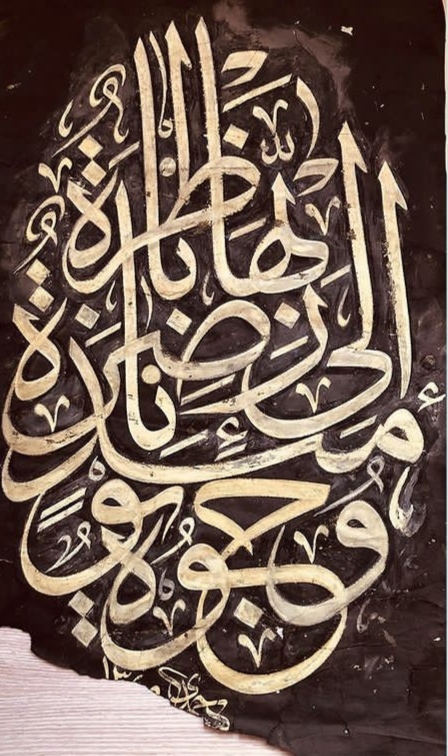 وُجُوهٌ يَوْمَئِذٍ
نَاضِرَةٌ إِلَىٰ رَبِّهَا نَاظِرَةٌ